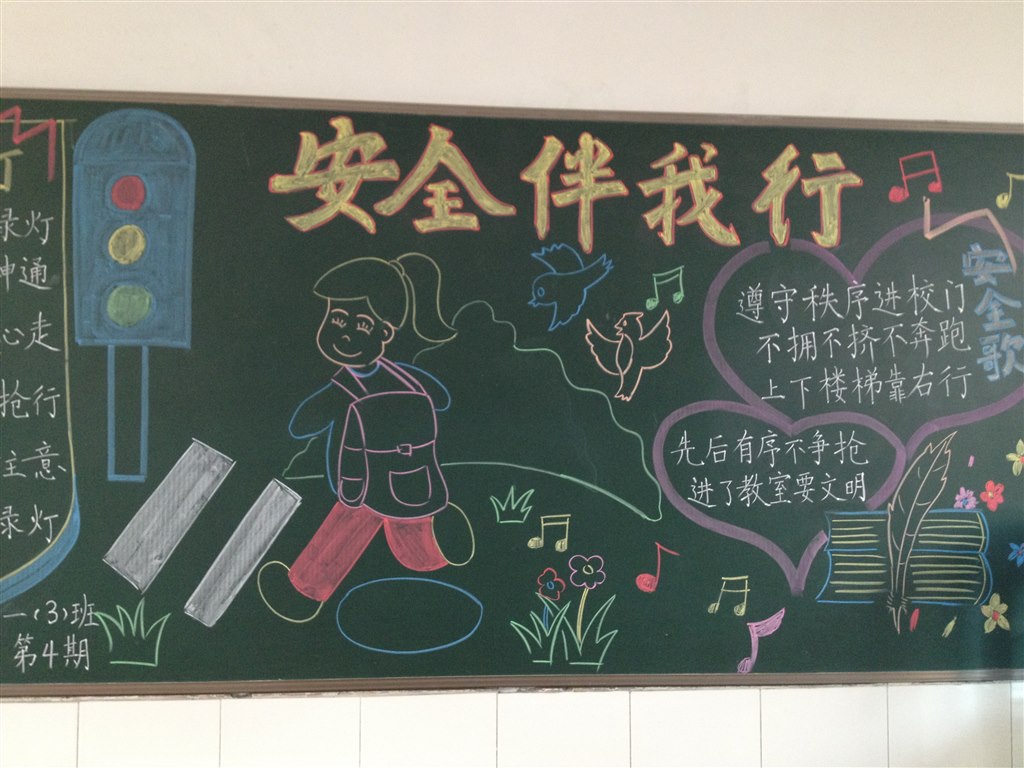 安全伴我行
灯
绿灯
神通
心走
抢行
主意
绿灯
一(3)班
第4期
安全歌
遵守秩序进校门
不拥不挤不奔跑
上下楼梯靠右行
先后有序不争抢
进了教室要文明